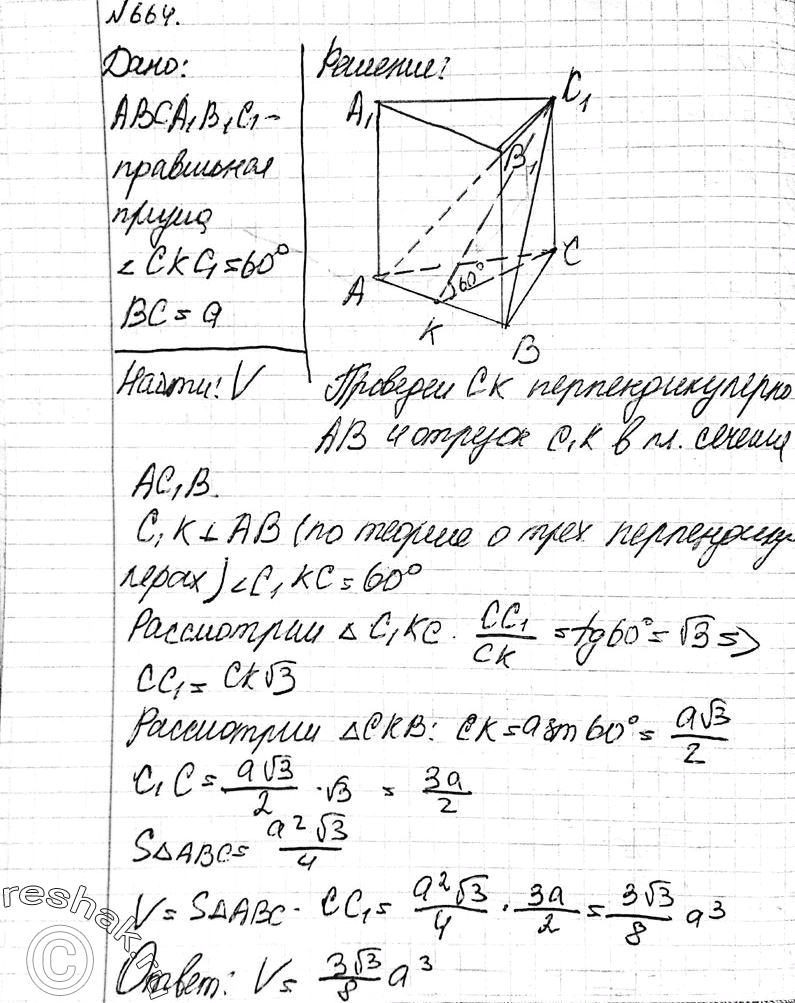 №664.
Дано:
ABCA₁B₁C₁ –
правильная
призма
∠CKC₁=60°
BC = a
Найти: V
Решение:
A₁
C₁
B₁
A
60°
C
K
B
Проведем CK перпендикулярно
AB и отрезок C₁K в пл. сечения
AC₁B.
C₁K⊥AB (по теореме о трех перпендику-
лярах) ∠C₁KC=60°
Рассмотрим △C₁KC. CC₁/CK = tg60°= √3 =>
CC₁= CK√3
Рассмотрим △CKB: CK=a sin 60°= a√3/2
C₁C = a√3/2 · √3 = 3a/2
S△ABC= a²√3/4
V= S△ABC · CC₁= a²√3/4 · 3a/2 = 3√3/8 a³
Ответ: V= 3√3/8 a³
©reshak